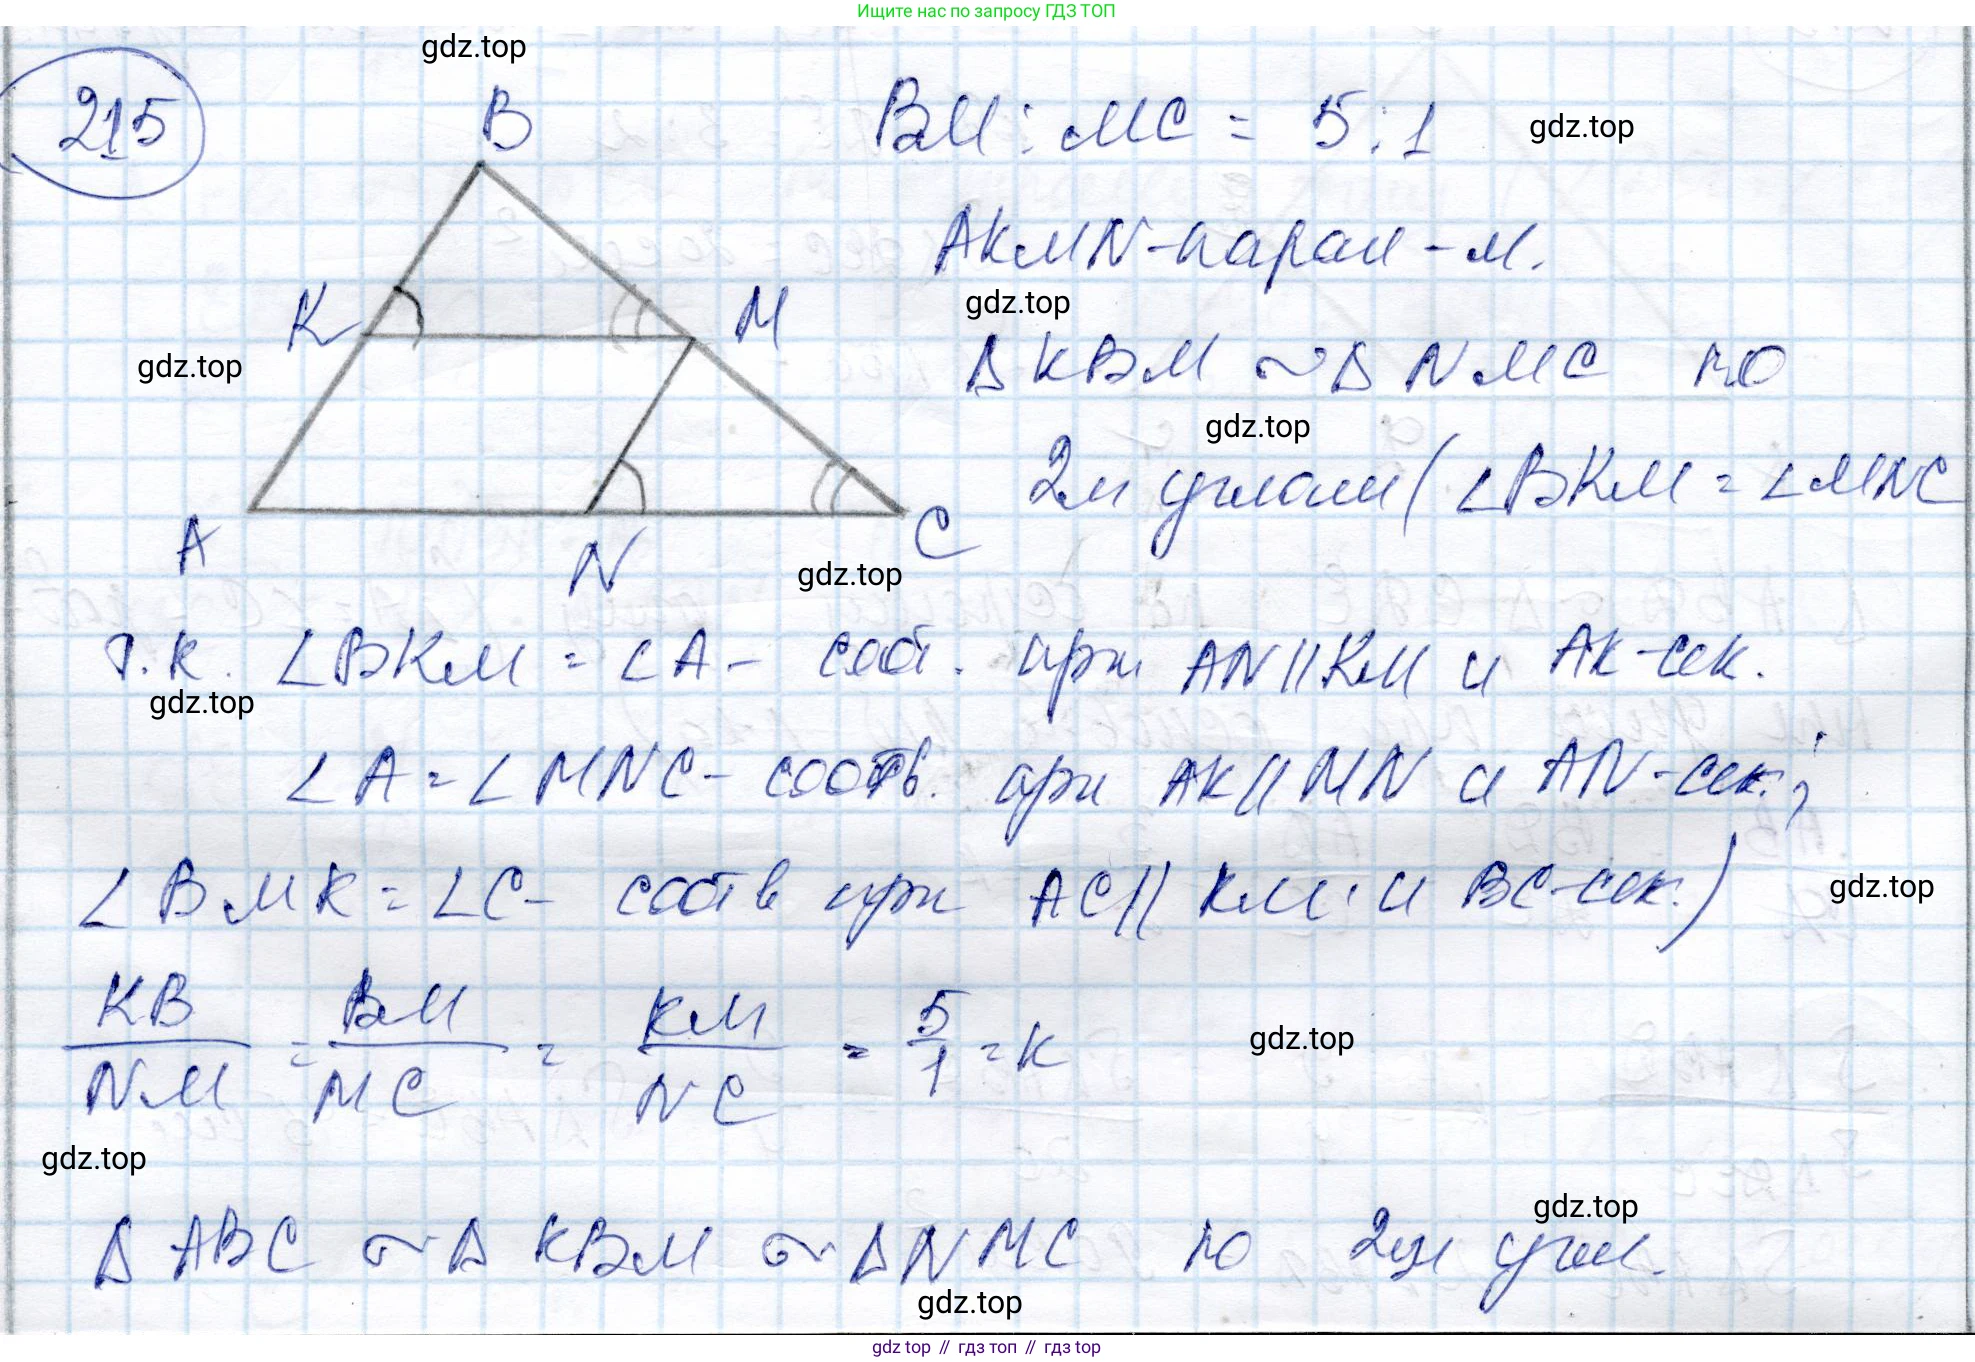 Ищите нас по запросу ГДЗ ТОП
gdz.top
215
B
BM : MC = 5 : 1
gdz.top
AKMN - парал - м.
K
M
gdz.top
gdz.top
Δ KBM ~ Δ NMC по
gdz.top
2м углам ( ∠BKM = ∠MNC
A
N
C
gdz.top
т.к. ∠BKM = ∠A - соот. при AN || KM и AK - сек.
gdz.top
∠A = ∠MNC - соотв. при AK || MN и AN - сек.;
∠BMK = ∠C - соотв при AC || KM и BC - сек.)
gdz.top
KB/NM = BM/MC = KM/NC = 5/1 = K
gdz.top
gdz.top
gdz.top
Δ ABC ~ Δ KBM ~ Δ NMC по 2ум угл.
gdz.top
gdz top // гдз топ // гдз.top